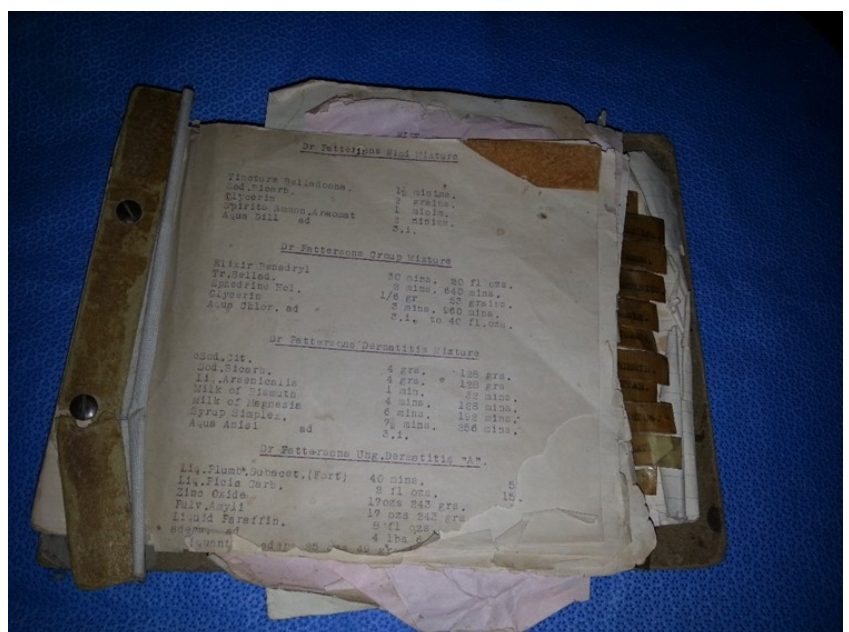 MIST
Dr Pattersons Mini Mixture
Tincture Belladonna. 1½ minims.
Sod.Bicarb. 2 grains.
Glycerin 1 minim.
Spirits Ammon.Aromat 2 minims.
Aqua Dill ad 3.i.
Dr Pattersons Group Mixture
Elixir Benedryl 30 mins. 20 fl ozs.
Tr.Bellad. 2 mins. 640 mins.
Ephedrine Hcl. 1/6 gr 53 grains.
Glycerin 3 mins. 960 mins.
Aqua Chlor. ad 3.i. to 40 fl.ozs.
Dr Pattersons Dermatitis Mixture
Sod.Cit. 4 grs. 128 grs.
Sod.Bicarb. 4 grs. 128 grs
Liq.Arsenicalis 1 min. 32 mins.
Milk of Bismuth 4 mins. 128 mins.
Milk of Magnesia 6 mins. 192 mins.
Syrup Simplex. 7½ mins. 256 mins.
Aqua Anisi ad 3.i.
Dr Pattersons Ung.Dermatitis "A".
Liq.Plumb.Subacet.(Fort) 40 mins. 5
Liq.Picis Carb. 2 fl ozs. 15
Zinc Oxide 17ozs 243 grs.
Pulv.Amyli 17 ozs 243 grs
Liquid Paraffin. 8 fl ozs.
adeps. ad 4 lbs
adeps 49